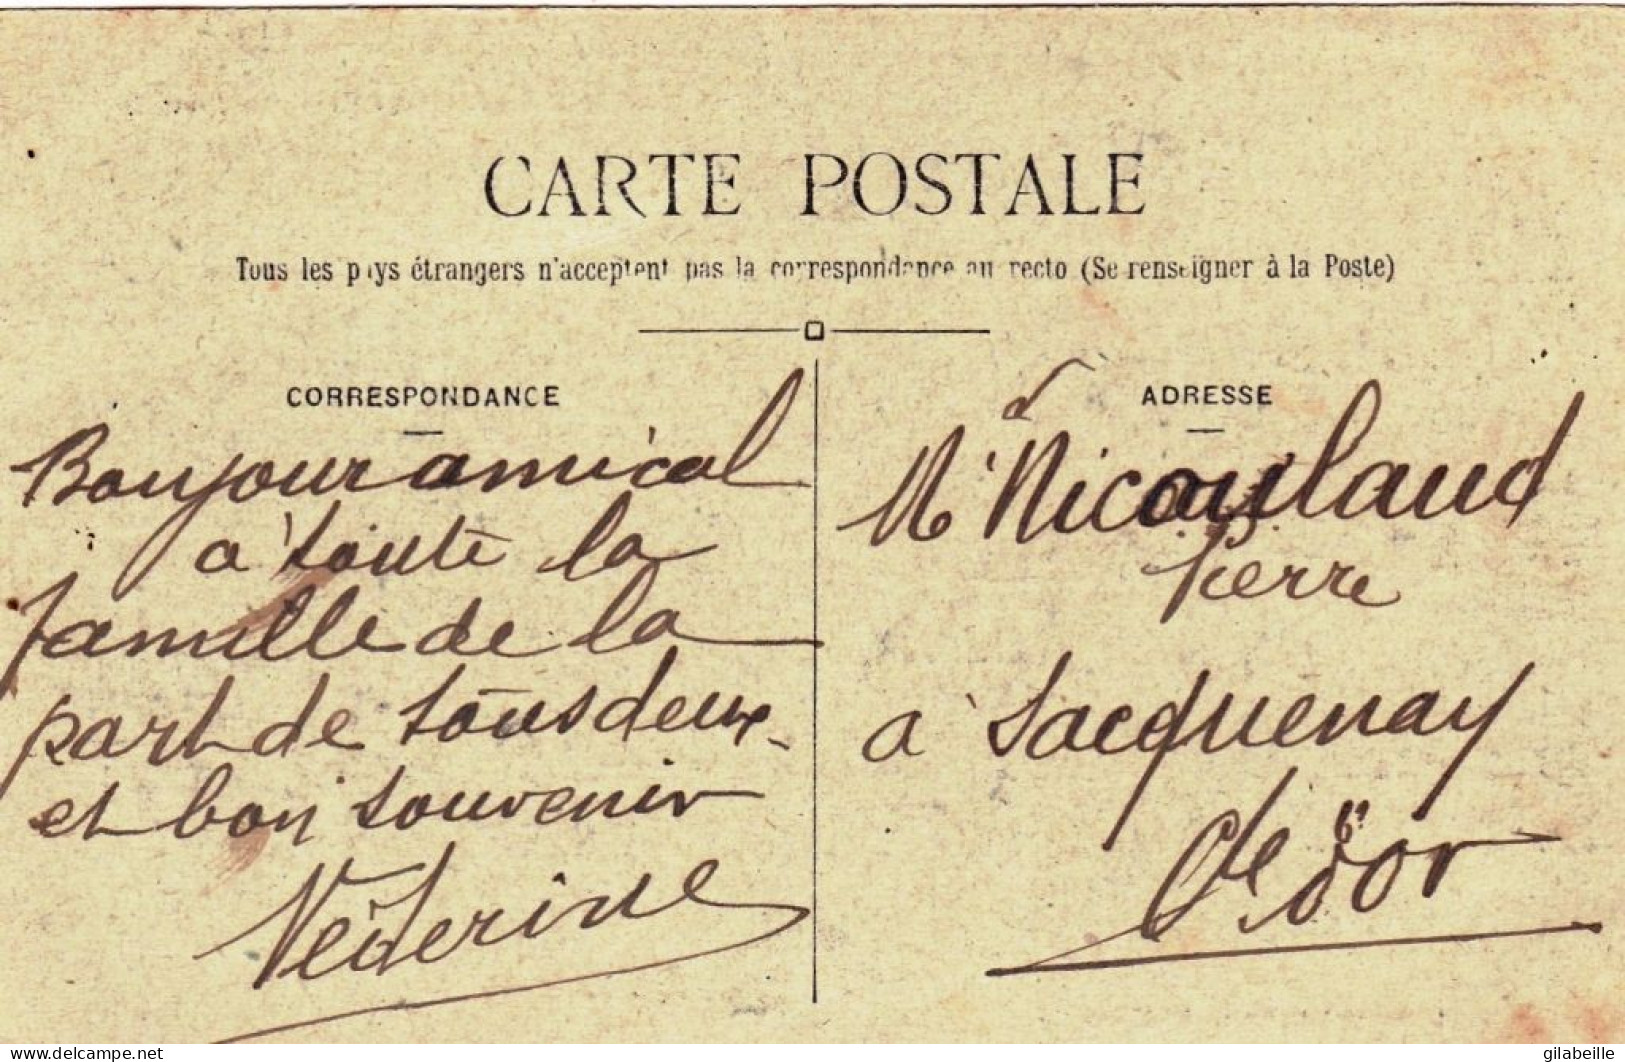 CARTE POSTALE
Tous les pays étrangers n'acceptent pas la correspondance au recto (Se renseigner à la Poste)
CORRESPONDANCE
Bonjour amical
a toute la
famille de la
part de tous deux
et bon souvenir
ADRESSE
Mr Nicoulaud
Pierre
a Sacquenay
Cte d'or
www.delcampe.net
gilabeille